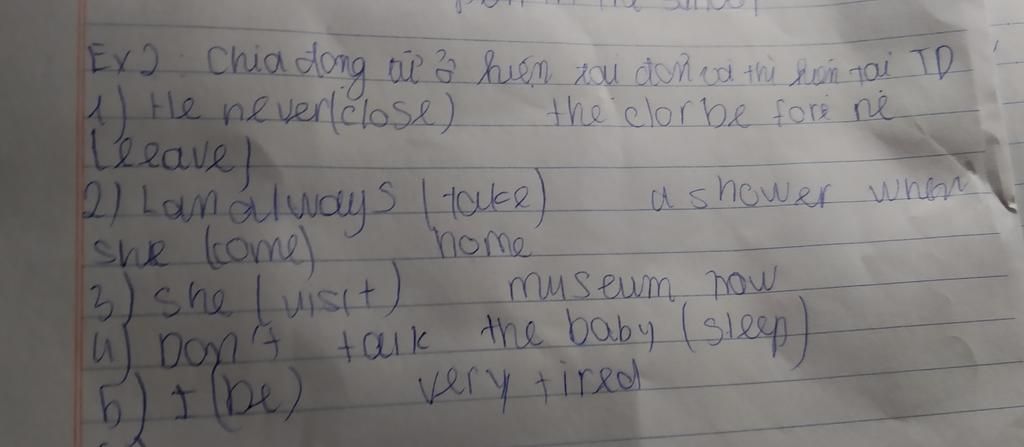 in the school
Ex2: Chia động từ ở hiện tại đơn và thì hiện tại TD
1) He never (close) the dor be fore he
(leave)
2) Lan always (take) a shower when
she (come) home
3) she (visit) museum now
4) Don't talk the baby (sleep)
5) I (be) very tired